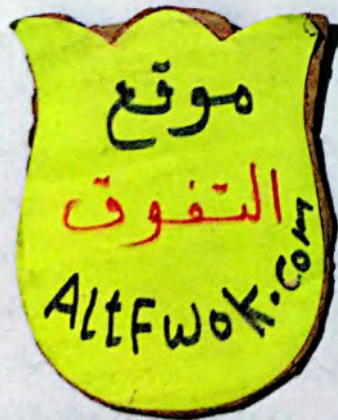 موقع
التفوق
Altfwok.com